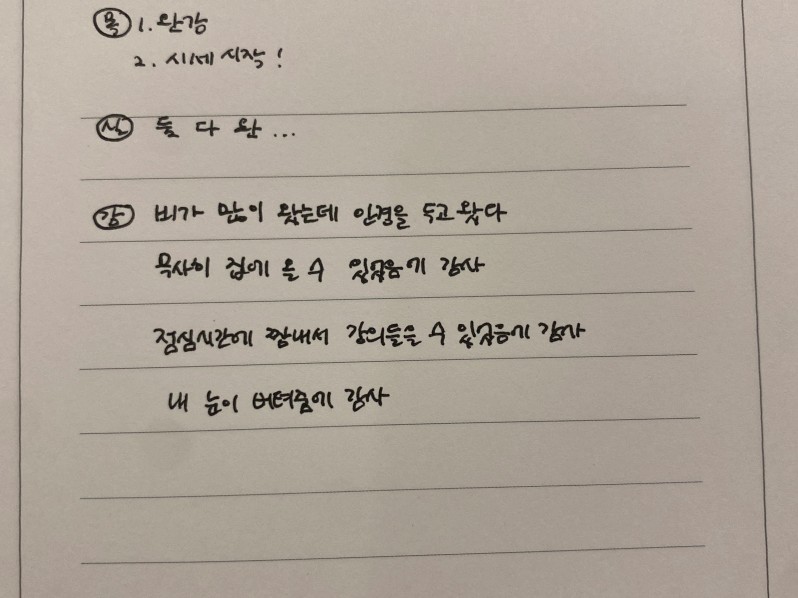 목 1. 완강
2. 시세 시작!
실 둘 다 완...
감 비가 많이 왔는데 안경을 두고 왔다
무사히 집에 올 수 있었음에 감사
점심시간에 짬내서 강의들을 수 있었음에 감사
내 눈이 버텨줌에 감사